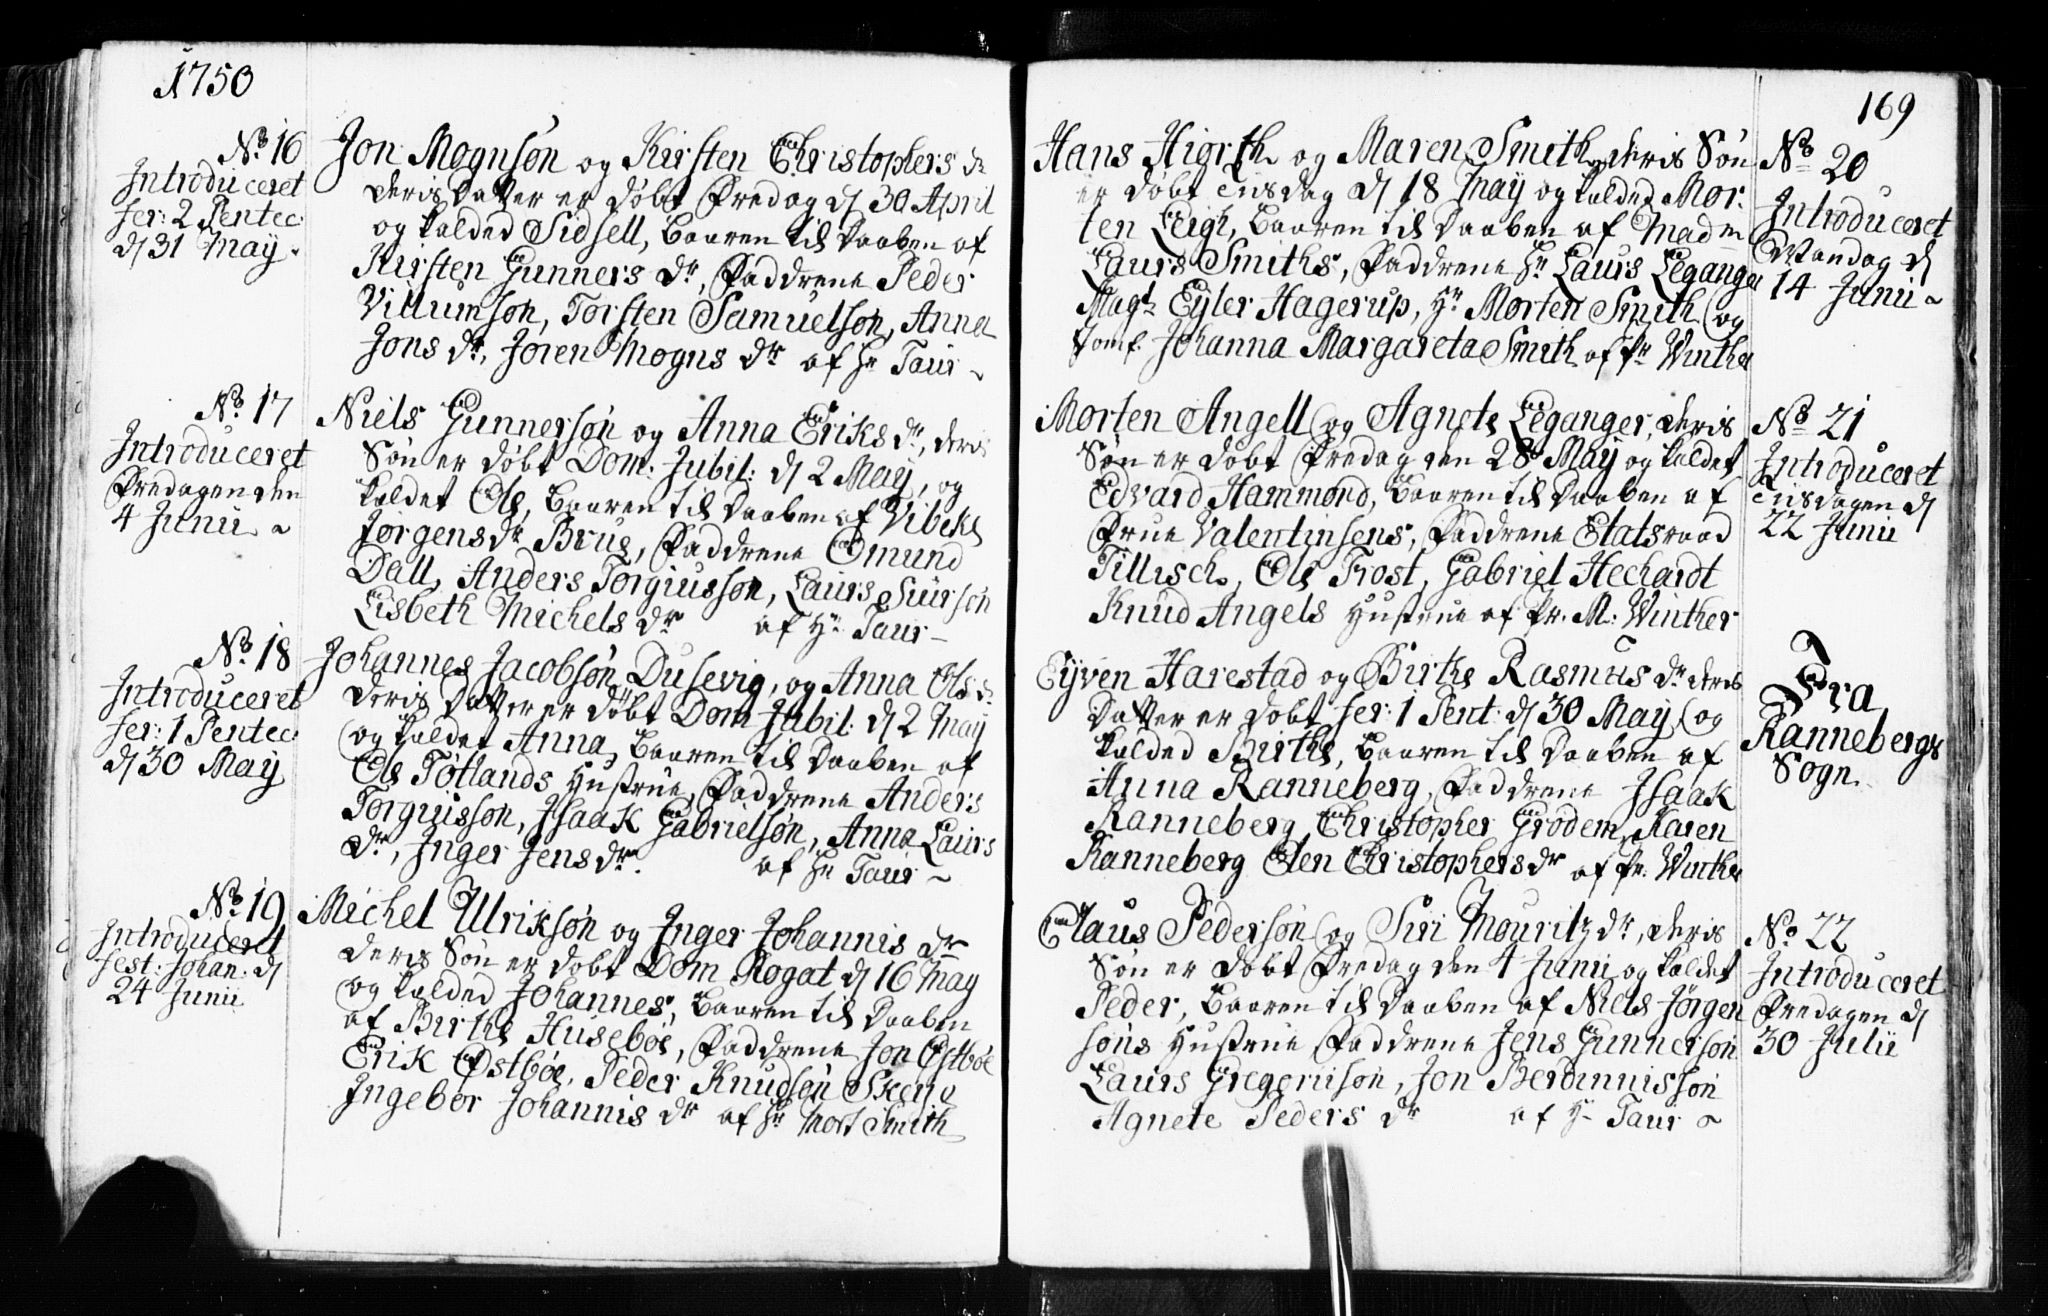 1750
No. 16
Introduceret
fer: 2 Pentec:
d 31 May.
Jon Mognsøn og Kirsten Christophers dr
deris Datter er døbt Fredag d 30 April
og kalded Sidsell, baaren til Daaben af
Kirsten Gunners dr, Faddrene Peder
Villumsøn, Torsten Samuelsøn, Anna
Jons dr, Joren Mogns dr af Hr Taur
No. 17
Introduceret
Fredagen den
4 Junii
Niels Gunnersøn og Anna Eriks dr, deris
Søn er døbt Dom: Jubil: d 2 May, og
kaldet Ole, baaren til Daaben af Vibeke
Jørgensdr Brug, Faddrene Omund
Dall, Anders Torgiusson, Laurs Siursøn
Lisbeth Michels dr af Hr Taur
No. 18
Introduceret
fer: 1 Pentec:
d 30 May
Johannes Jacobsøn Dusevig, og Anna Ols dr
deris Datter er døbt Dom Jubil: d 2 May
og kaldet Anna, baaren til Daaben af
Ole Tøtlands Hustrue, Faddrene Anders
Torguisson, Isaak Gabrielsøn, Anna Laurs
dr, Inger Jens dr. af Hr Taur
No. 19
Introduceret
fest: Johan: d
24 Junii
Michel Ulriksøn og Inger Johannis dr
deris Søn er døbt Dom Rogat d 16 May
og kalded Johannes, baaren til Daaben
af Birthe Husebøe, Faddrene Jon Østbøe
Erik Østbøe, Peder Knudsøn
Ingebor Johannis dr af Hr Mort Smith
169
Hans Higrth og Maren Smith deris Søn
er døbt Tisdag d 18 May og kalded Mor-
ten Leigh, baaren til Daaben af Madm
Laurs Smiths, Faddrene Hr Laurs Leganger
Magr Eyler Hagerup, Hr Morten Smith og
Jomf. Johanna Margareta Smith af Pr Winther
No 20
Introduceret
Mandag d
14 Junii
Morten Angell og Agnete Leganger, deris
Søn er døbt Fredag den 28 May og kaldet
Edvard Hammond, baaren til Daaben af
Frue Valentinsens, Faddrene Etatsraad
Tillisch, Ole Frost, Gabriel Hechardt
Knud Angels Hustrue af Pr. M: Winther
No 21
Introduceret
Tisdagen d
22 Junii
Eyven Harestad og Birthe Rasmus dr deris
Datter er døbt fer: 1 Pent: d 30 May, og
kalded Birthe, baaren til Daaben af
Anna Ranneberg, Faddrene Isaak
Ranneberg, Christopher Grødem, Karen
Ranneberg Elen Christophersdr af Pr. Winther
Fra
Rannebergs
Sogn.
Claus Pedersøn og Siri Mouritz dr, deris
Søn er døbt Fredag den 4 Junii og kaldet
Peder, baaren til Daaben af Niels Jørgen
søns Hustrue Faddrene Jens Gunnersøn
Laurs Gregeriisøn, Jon Berdinnissøn
Agnete Peders dr af Hr Taur
No. 22
Introduceret
Fredagen d
30 Julii